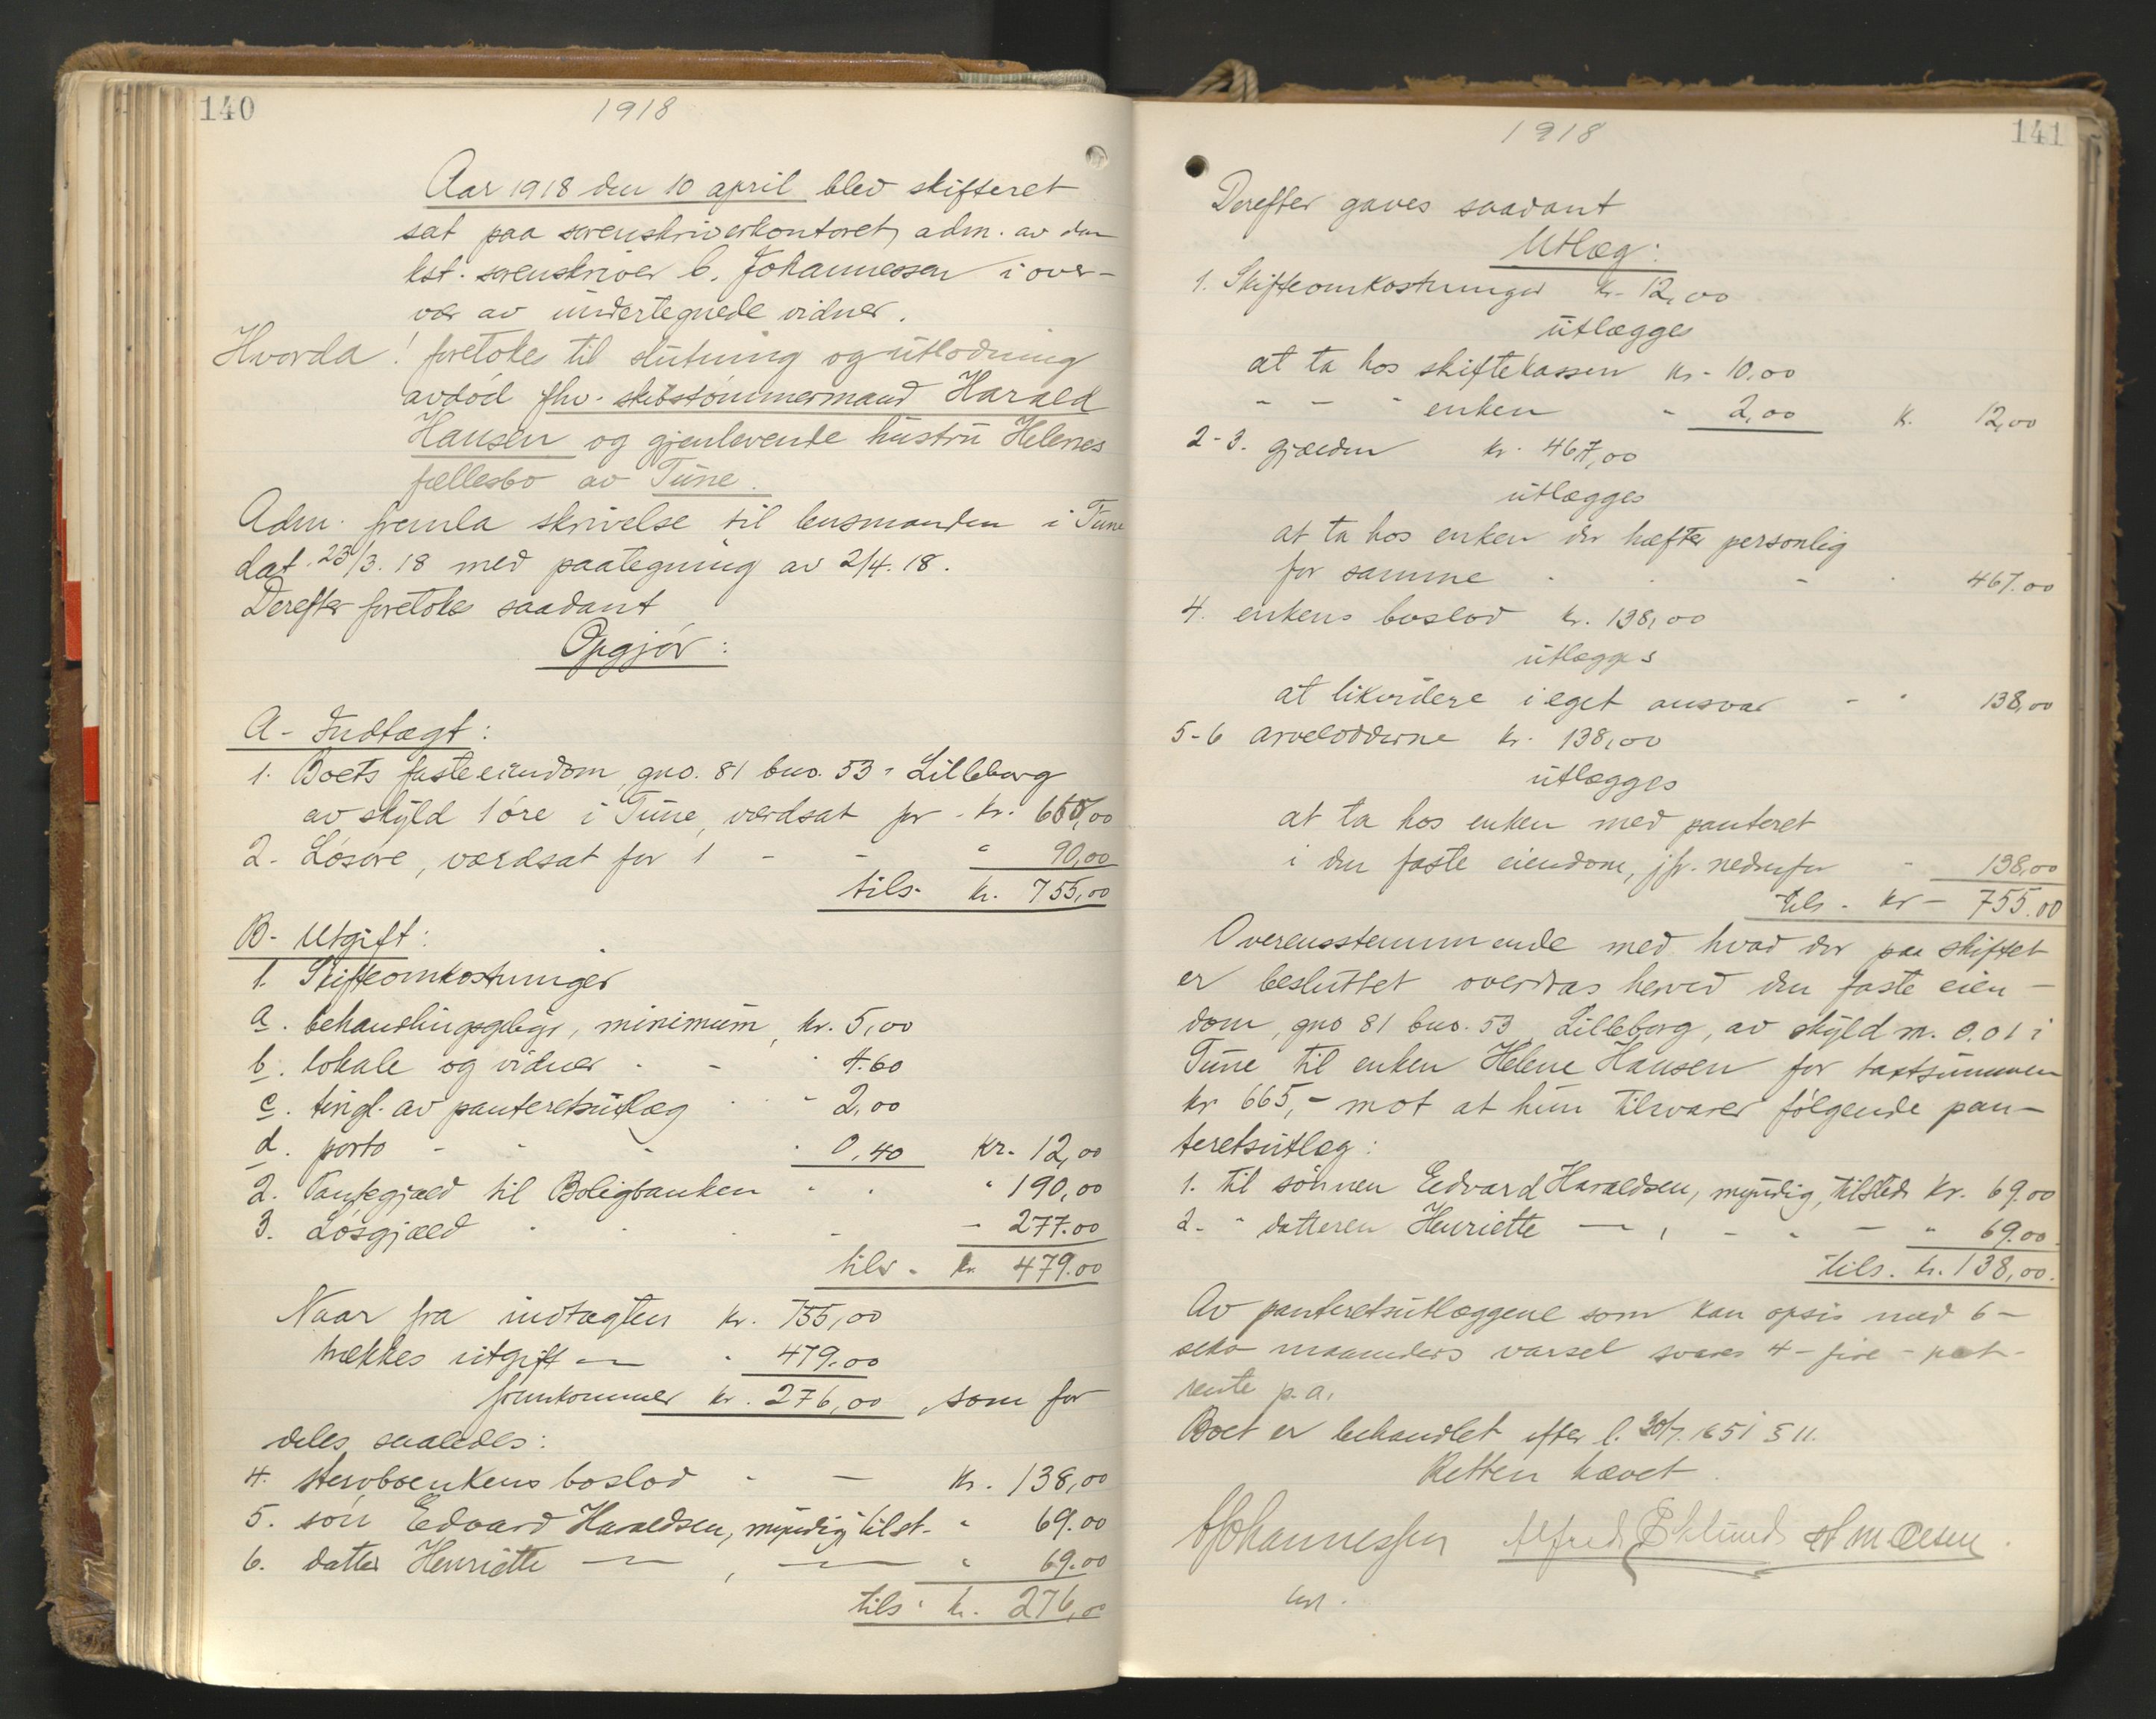 140
1918
Aar 1918 den 10 april blev skifteret
sat paa sorenskriverkontoret, adm. av den
kst. sorenskriver C. Johannessen i over-
vær av undertegnede vidner.
Hvorda! foretokes til slutning og utlodning
avdød fhv. skibstømmermand Harald
Hansen og gjenlevende hustru Helenes
fællesbo av Tune.
Adm. fremla skrivelse til lensmanden i Tune
dat. 23/3. 18 med paategning av 2/4. 18.
Derefter foretokes saadant
Opgjør:
A- Indtægt:
1. Boets faste eiendom, gno. 81 bno. 53 - Lilleborg
av skyld 1 øre i Tune, værdsat for - kr. 665,00
2- Løsøre, værdsat for - - " 90,00
tils- kr. 755,00
B- Utgift:
1. Skifteomkostninger
a. behandlingsgebyr, minimum, kr. 5,00
b. lokale og vidner - - " 4.60
c. tingl. av panteretsutlæg - " 2,00
d. porto - - - " 0,40 kr. 12,00
2. Pantegjæld til Boligbanken - - " 190,00
3. Løsgjæld - - - - 277.00
tils - kr. 479.00
Naar fra indtægten kr. 755,00
trækkes utgift — " 479.00
fremkommer kr. 276,00, som for
deles saaledes:
4. stervboenkens boslod - — kr. 138,00
5. søn Edvard Haraldsen, myndig, tilst. - " 69.00
6. datter Henriette — , — " 69.00
tils - kr. 276,00
141
1918
Derefter gaves saadant
Utlæg:
1. Skifteomkostninger kr. 12,00
utlægges
at ta hos skiftekassen kr. 10,00
" - " enken " 2,00 kr. 12,00
2-3. gjælden kr. 467,00
utlægges
at ta hos enken der hæfter personlig
for samme - - - 467.00
4. enkens boslod kr. 138,00
utlægges
at likvidere i eget ansvar - " 138,00
5-6 arvelodderne kr. 138,00
utlægges
at ta hos enken med panteret
i den faste eiendom, jfr. nedenfor - 138,00
tils. kr - 755.00
Overensstemmende med hvad der paa skiftet
er besluttet overdras herved den faste eien-
dom, gno 81 bno. 53, Lilleborg, av skyld m. 0.01 i
Tune til enken Helene Hansen for taxtsummen
kr 665,- mot at hun tilsvarer følgende pan-
teretsutlæg:
1. til sønnen Edvard Haraldsen, myndig, tilstede kr. 69.00
2. " datteren Henriette — , - - — " 69.00.
tils. kr. 138,00.
Av panteretsutlæggene som kan opsies med 6-
seks maaneders varsel svares 4-fire-pct-
rente p.a.
Boet er behandlet efter l. 30/7. 1851 § 11.
Retten hævet.
CJohannessen Alfred Eklund M Olsen.
kst.